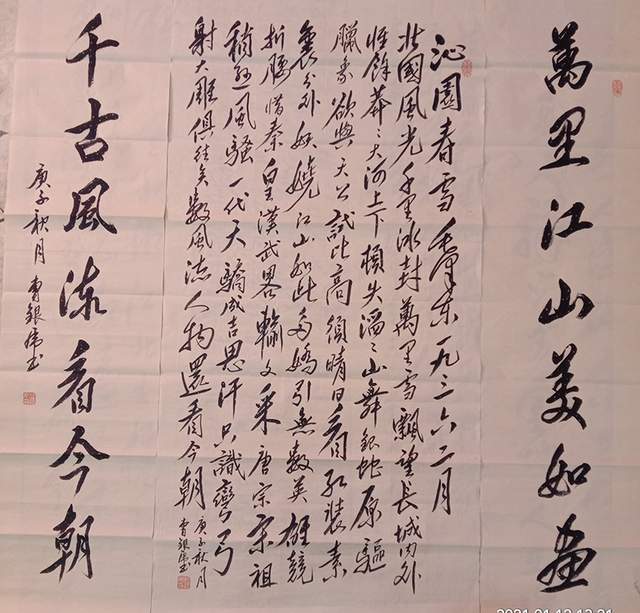 萬里江山美如畫
沁園春雪 毛澤東一九三六二月
北國風光千里冰封萬里雪飄望長城内外
惟餘莽〻大河上下頓失滔〻山舞銀蛇原驅
臘象欲與天公試比高須晴日看紅裝素
裹分外妖嬈江山如此多嬌引無數英雄競
折腰惜秦皇漢武畧輸文采唐宗宋祖
稍遜風騷一代天驕成吉思汗只識彎弓
射大雕俱往矣數風流人物還看今朝
庚子秋月
曹銀书
千古風流看今朝
庚子秋月 曹銀书